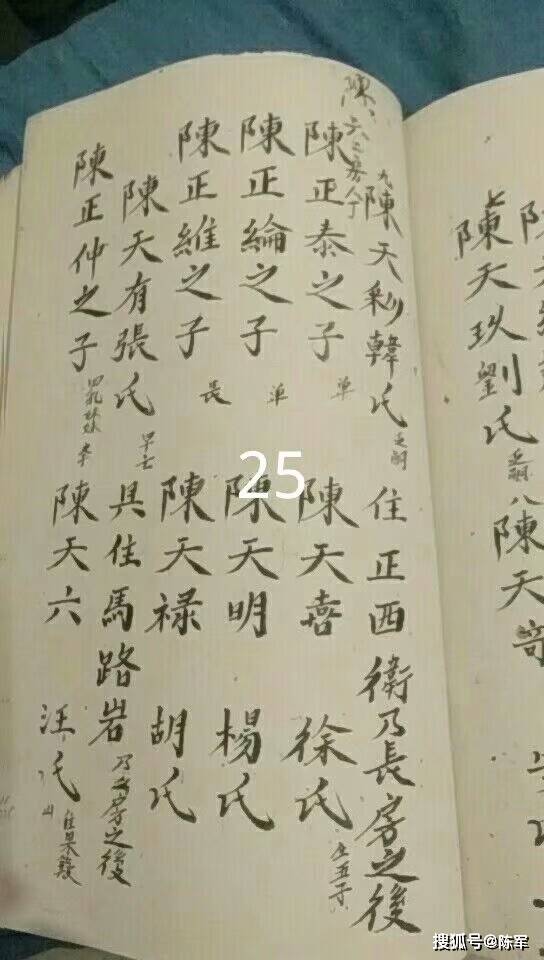 七
陳天玖劉氏
乏嗣
八陳天
九陳天彩韓氏
乏嗣
住正西衛乃長房之後
陳正泰之子
单
陳天喜
徐氏
生五子
陳正綸之子
单
陳天明
楊氏
陳正維之子
長
陳天禄
胡氏
陳天有張氏
早亡
具住馬路岩
乃長房之後
陳正仲之子
陳天六
汪氏
25
搜狐号@陈军